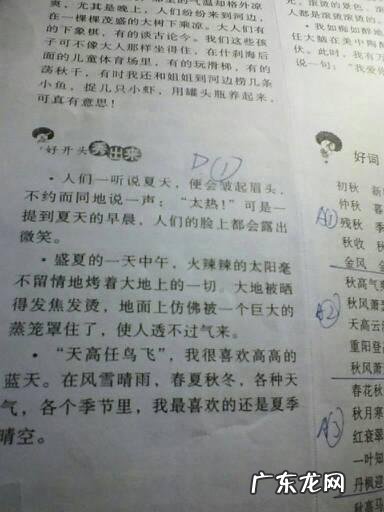 爽，尤其是晚上，人们纷纷来到河边，
在一棵棵茂盛的大树下乘凉。大人们有
的下象棋，有的谈古论今。我们这些孩
子可不像大人那样坐得住，在什刹海后
面的儿童体育场里，有的玩滑梯，有的
荡秋千，有时我还和姐姐到河边捞几条
小鱼，捉几只小虾，用罐头瓶养起来，
可真有意思！
好开头 秀出来
D①
·人们一听说夏天，便会皱起眉头，
不约而同地说一声：“太热！”可是一
提到夏天的早晨，人们的脸上都会露出
微笑。
·盛夏的一天中午，火辣辣的太阳毫
不留情地烤着大地上的一切。大地被晒
得发焦发烫，地面上仿佛被一个巨大的
蒸笼罩住了，使人透不过气来。
·“天高任鸟飞”，我很喜欢高高的
蓝天。在风雪晴雨，春夏秋冬，各种天
气，各个季节里，我最喜欢的还是夏季
晴空。
人都是滚烫滚烫的
·我如痴如醉地
任大脑在美中陶
伏。此时，我有万
说一句：“我爱
好词
初秋 新
仲秋 暮
A①
残秋 季
秋收 秋
金风 金
秋高气爽
A②
秋风萧
天高云
重阳登
秋风萧
春花秋
秋月寒
A③
红衰翠
一叶知
丹枫迎
秋高马
广东龙网